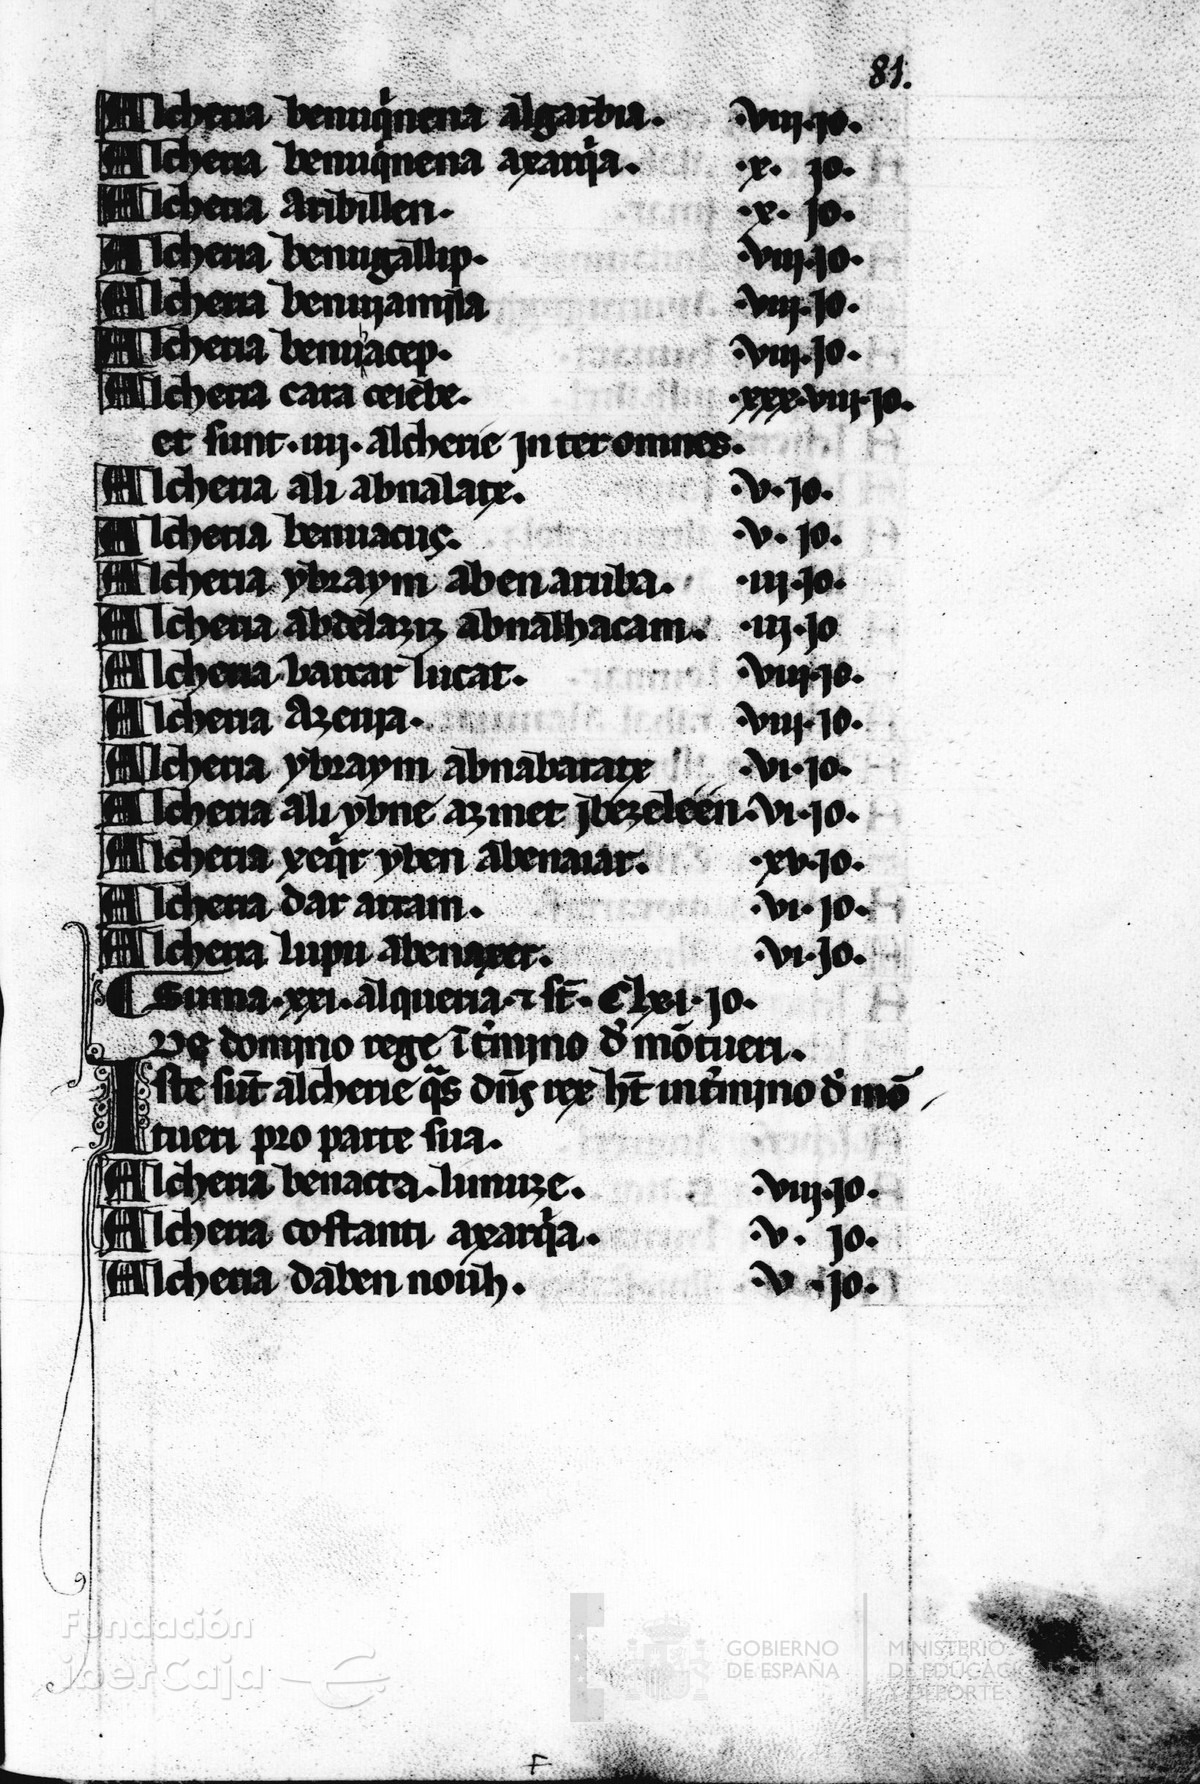 81.
Alcheria beniiq̇inena algarbia. ·viii·jo·
Alcheria beniiq̇inena axarq̇ia. ·x· jo·
Alcheria Aribillen· ·x· jo·
Alcheria benigallip· ·viii·jo·
Alcheria ·viii·jo·
Alcheria beniiacep· ·viii·jo·
Alcheria cara ceiēbe· ·xxx·viii·jo·
et sunt·iiij· alcherie jnter omnes·
Alcheria ali abnalate. ·v·jo·
Alcheria beniiacuç. ·v· jo·
Alcheria ybraym aben aruba. ·iij·jo·
Alcheria abdelaziz abnalhacam. ·iij·jo
Alcheria barrar lucat. ·viij·jo·
Alcheria Azeiija. ·viij·jo·
Alcheria ybraym abnabarate ·vi·jo·
Alcheria ali ybne azmet jbezeleen·vi·jo·
Alcheria xeq̇r yben abenaiar. ·xv·jo·
Alcheria dar arram. ·vi·jo·
Alcheria lupu ·vi·jo·
Suma·xxi·alqueria·⁊ st̄· Clxi·jo·
De domino rege ī t̓mino d̓ mōtueri.
Iste sūt alcherie q̄s dn̄s rex ht̄ in t̓mino d̓ mō
tueri pro parte sua.
Alcheria benacta·lunuze. ·viij·jo·
Alcheria costanti axarq̇a· ·v· jo·
Alcheria daben noūh. ·v·jo·
Fundación
iberCaja
GOBIERNO
DE ESPAÑA
MINISTERIO
DE EDUCACI
Y DEPORTE
F